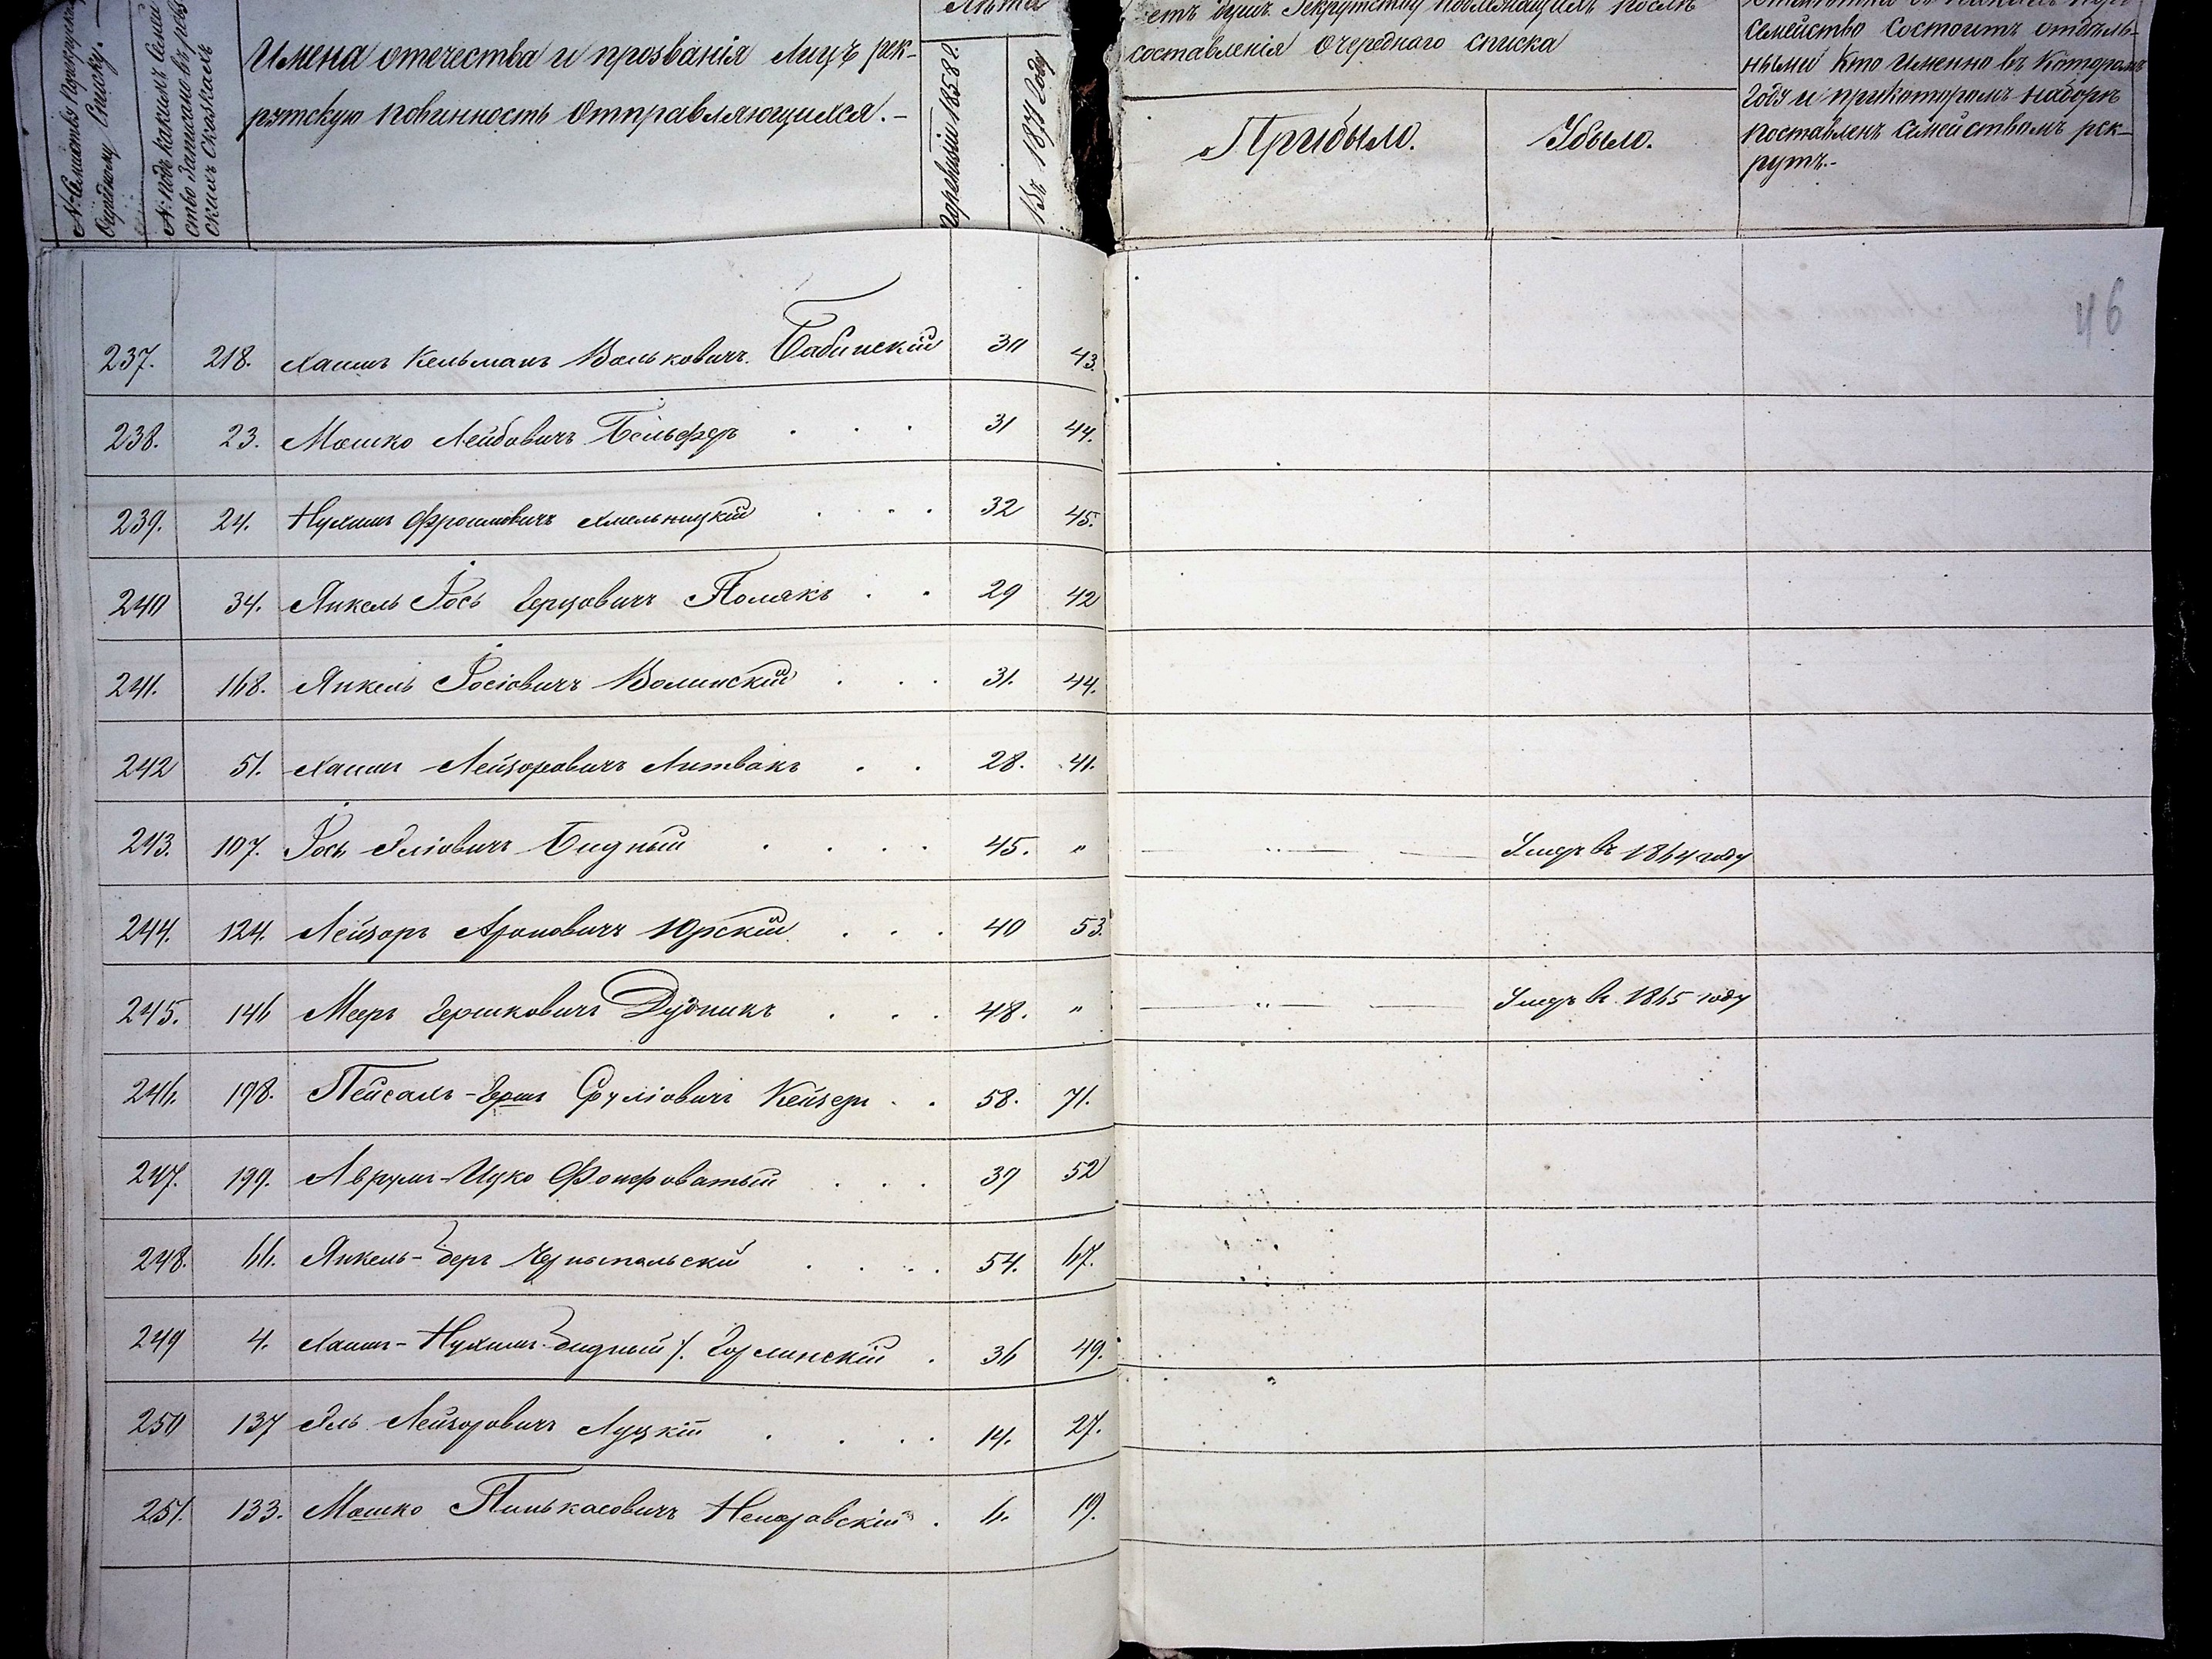 № Семейства
Очередному Списку.
№ подъ какимъ Семей
ство Записано въ рев
скихъ Сказкахъ
Имена отечества и прозванія Лицъ рек-
рутскую повинность Отправляющихся. -
Лѣта
По ревизіи 1858 г.
Въ 1871 Году
составленія Очереднаго списка
Прибыло.
Убыло.
Семейство Состоитъ отдѣль-
ными Кто Именно въ Которомъ
Году и прикоторомъ наборѣ
поставленъ Семействомъ рек-
рутъ.-
46
237. 218. Хаимъ Кельманъ Вольковичъ Бабинскій 30 43.
238. 23. Мошко Лейбовичъ Бельфер 31 44.
239. 24. Нухимъ Фроимовичъ Хмельницкій 32 45.
240 34. Янкель Іось Герцовичъ Полякъ 29 42
241. 168. Янкель Іосіовичъ Волинскій 31. 44.
242 51. Хаимъ Лейзоровичъ Литвакъ 28. 41.
243. 107. Іось Эліовичъ Бидный 45. " " Умеръ въ 1864 году
244. 124. Лейзоръ Ароновичъ Юрскій 40 53.
245. 146 Мееръ Гершковичъ Дудникъ 48. " " Умеръ въ 1865 году
246. 198. Пейсахъ-Гершъ Сруліовичъ Кейзеръ 58. 71.
247. 199. Аврумъ-Ицко 39 52
248. 66. Янкель-Беръ 54. 67.
249 4. Хаимъ-Нухимъ Бидный 36 49.
250 137 Эль Лейзоровичъ Луцкій 14. 27.
251. 133. Мошко Пинькасовичъ 6. 19.